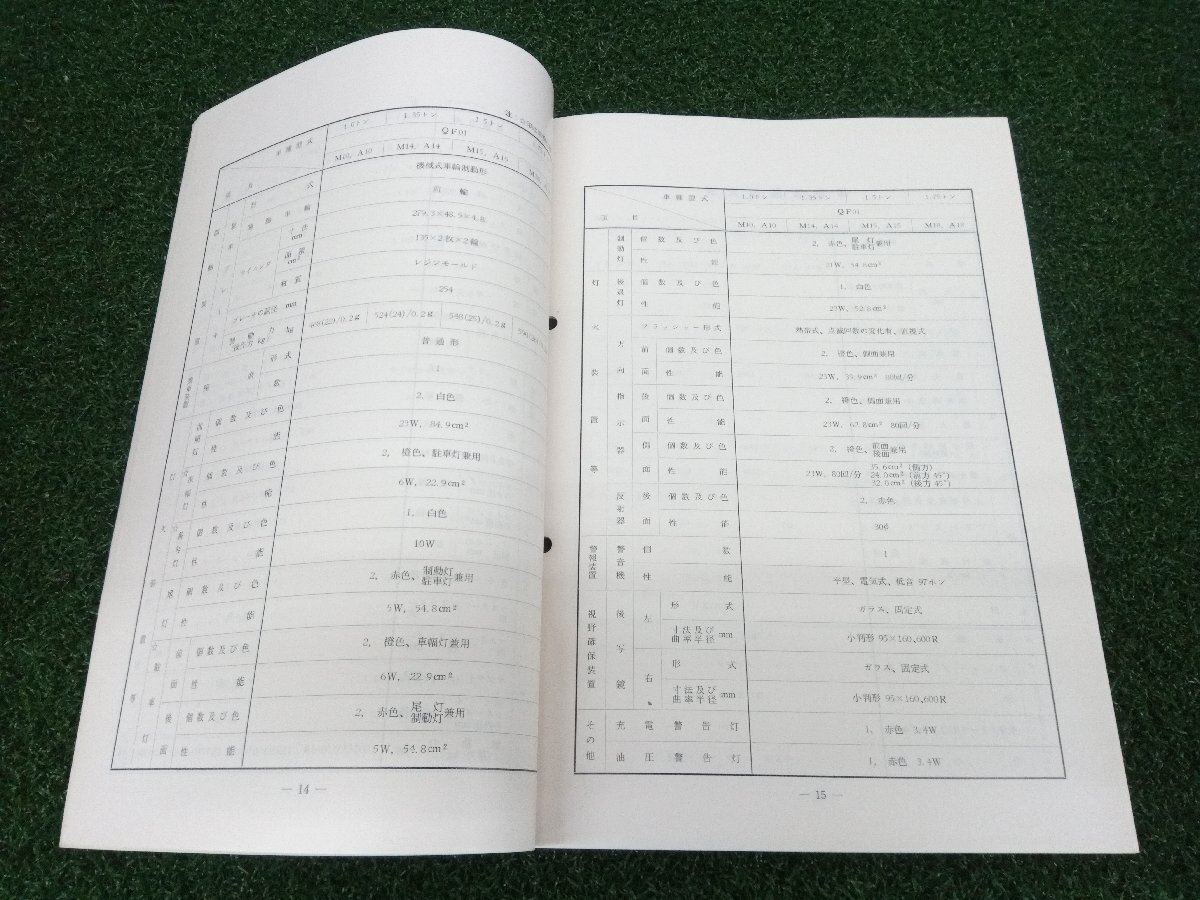 車種型式
1.35トン
1.5トン
QF01
M10, A10
M14, A14
M15, A15
機械式車輪制動形
前輪
279.5×48.5×4.8
135×2枚×2輪
レジンモールド
254
524(24)/0.2g
548(25)/0.2g
普通形
1
個数及び色
2, 白色
性能
23W, 84.9cm²
個数及び色
2, 橙色、駐車灯兼用
性能
6W, 22.9cm²
個数及び色
1, 白色
性能
10W
個数及び色
2, 赤色、制動灯駐車灯兼用
性能
5W, 54.8cm²
前面
個数及び色
2, 橙色、車幅灯兼用
性能
6W, 22.9cm²
後面
個数及び色
2, 赤色、尾灯制動灯兼用
性能
5W, 54.8cm²
— 14 —
車種型式
1.35トン
1.5トン
1.75トン
項目
QF01
M10, A10
M14, A14
M15, A15
M18, A18
灯火装置等
制動灯
個数及び色
2, 赤色、尾灯駐車灯兼用
性能
後退灯
個数及び色
1, 白色
性能
23W, 52.8cm²
方向指示器
フラッシャー形式
熱帯式、点滅回数の変化制、直視式
前面
個数及び色
2, 橙色、側面兼用
性能
23W, 39.9cm² 80回/分
後面
個数及び色
2, 橙色、側面兼用
性能
23W, 62.8cm² 80回/分
側面
個数及び色
2, 橙色、前面後面兼用
性能
23W, 80回/分
35.6cm² (側方)
24.0cm² (前方45°)
32.0cm² (後方45°)
反射器
後面
個数及び色
2, 赤色
性能
30φ
警報装置
警音機
個数
1
性能
平型、電気式、低音 97ホン
視野確保装置
後写鏡
左
形式
ガラス、固定式
寸法及び曲率半径 mm
小判形 95×160, 600R
右
形式
ガラス、固定式
寸法及び曲率半径 mm
小判形 95×160, 600R
その他
充電警告灯
1, 赤色 3.4W
油圧警告灯
1, 赤色 3.4W
— 15 —